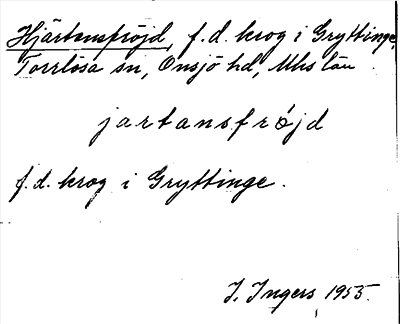 Hjärtansfröjd, f.d. krog i Gryttinge,
Torrlösa sn, Onsjö hd, Mhs län.
jartansfrøjd
f.d. krog i Gryttinge.
I. Ingers 1955.